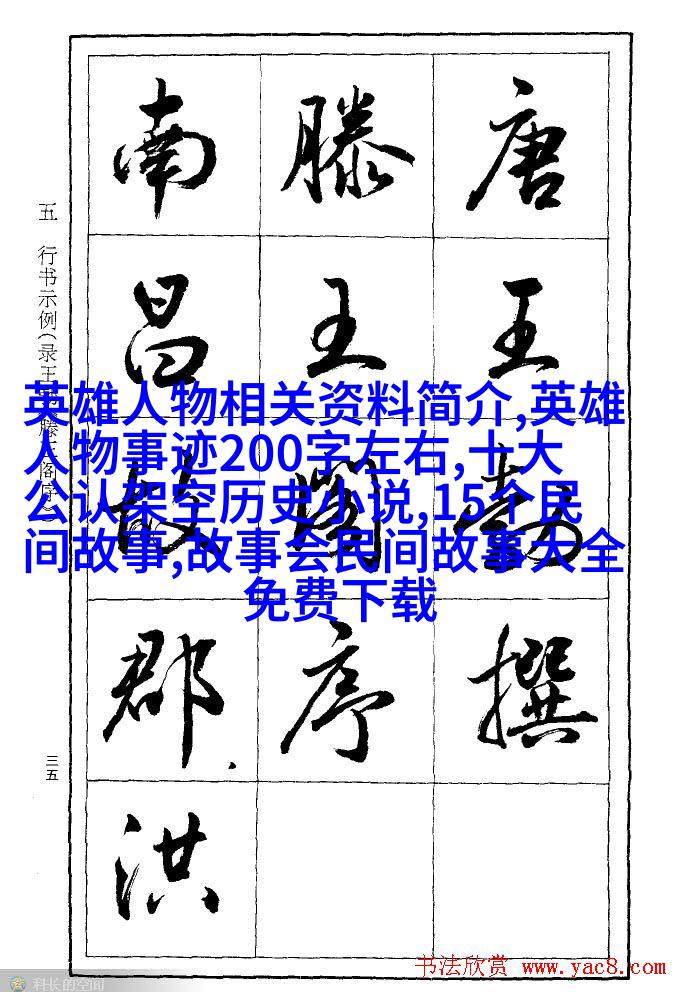 唐王勃撰
滕王閣序
南昌故郡洪
五 行书示例(录王勃滕王阁序)
三五
英雄人物相关资料简介,英雄
人物事迹200字左右,十大
公认架空历史小说,15个民
间故事,故事会民间故事大全
免费下载
书法欣赏 www.yac8.com
科长的空间